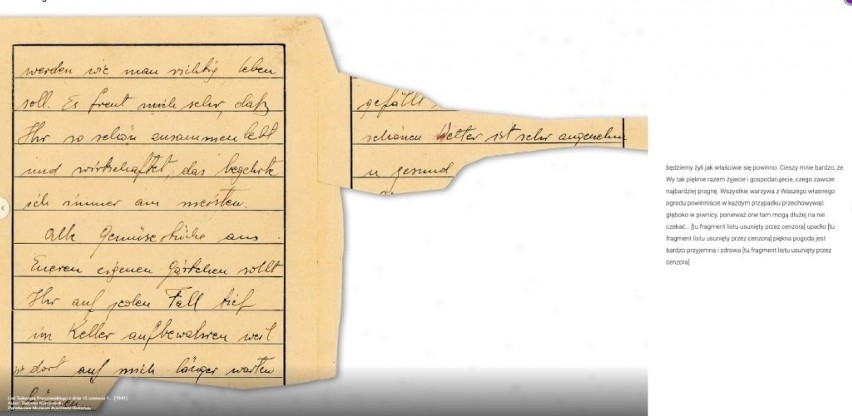 werden wie man richtig leben
soll. Es freut mich sehr, daß
Ihr so schön zusammen lebt
und wirtschaftet, das begehrte
ich immer am meisten.
Alle Gemüsestücke aus
Eueren eigenen Gärtchen sollt
Ihr auf jeden Fall tief
im Keller aufbewahren weil
dort auf mich länger warten
können...
gefällt
schönen Wetter ist sehr angenehm
u gesund
będziemy żyli jak właściwie się powinno. Cieszy mnie bardzo, że
Wy tak pięknie razem żyjecie i gospodarujecie, czego zawsze
najbardziej pragnę. Wszystkie warzywa z Waszego własnego
ogredu powinniście w każdym przypadku przechowywać
głęboko w piwnicy, ponieważ one tam mogą dłużej na nie
czekać... [tu fragment listu usunięty przez cenzora] upadło [tu
fragment listu usunięty przez cenzora] piękna pogoda jest
bardzo przyjemna i zdrowa [tu fragment listu usunięty przez
cenzora]